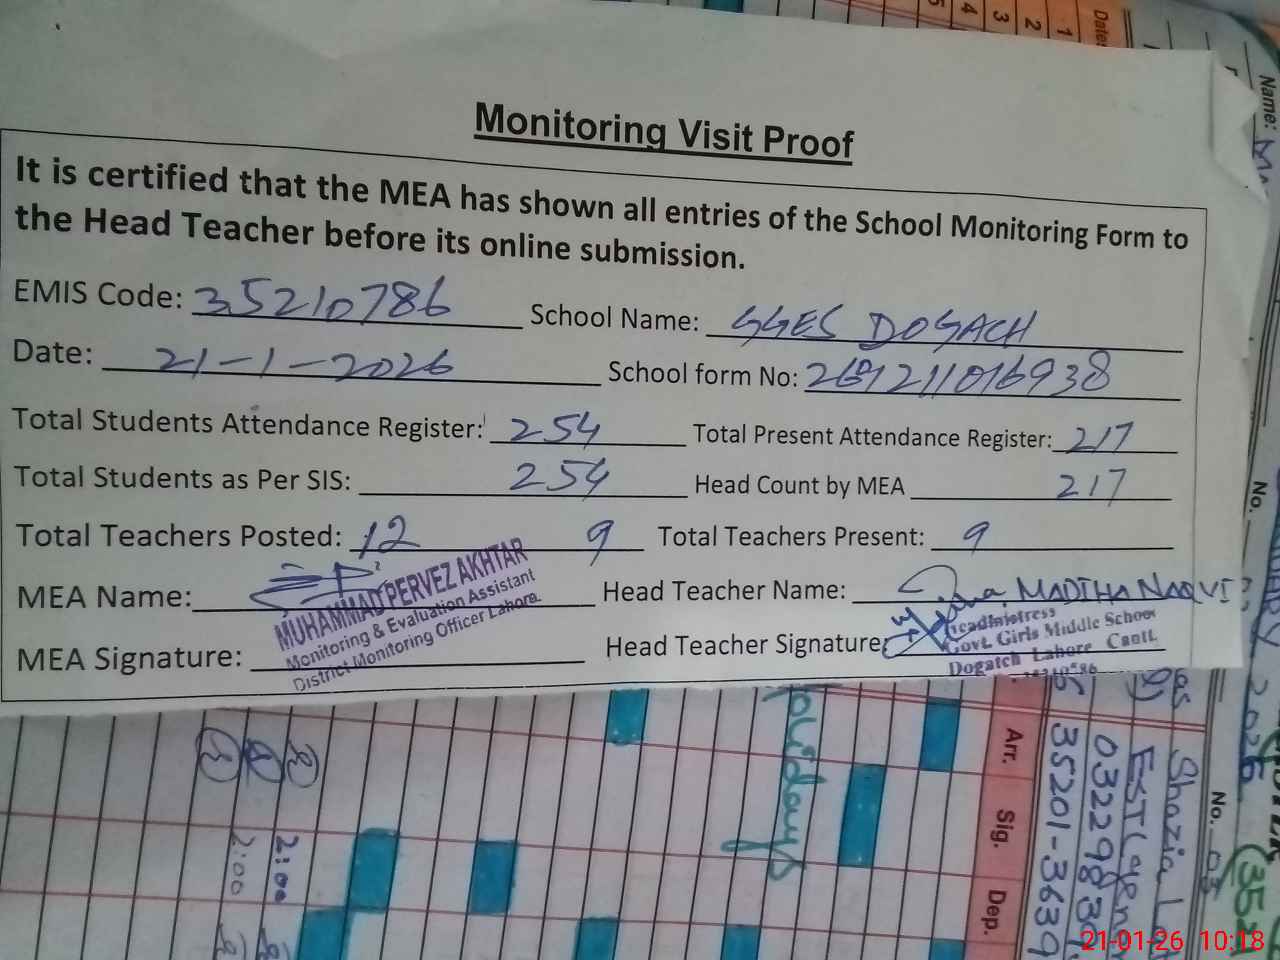 Monitoring Visit Proof
It is certified that the MEA has shown all entries of the School Monitoring Form to
the Head Teacher before its online submission.
EMIS Code: 35210786 School Name: GGES DOGACH
Date: 21-1-2026 School form No:
Total Students Attendance Register: 254 Total Present Attendance Register: 217
Total Students as Per SIS: 254 Head Count by MEA 217
Total Teachers Posted: 12 9 Total Teachers Present: 9
MEA Name: Head Teacher Name: MADIHA NAQVI
MUHAMMAD PERVEZ AKHTAR
Monitoring & Evaluation Assistant
District Monitoring Officer Lahore.
MEA Signature: Head Teacher Signature:
Headmistress
Govt. Girls Middle School
Dogatch Lahore Cantt.
Date
1
2
3
4
5
Name:
No.
2026
No. 05
Shazia
EST
35201-3639
Arr.
Sig.
Dep.
2:00
2:00
21-01-26 10:18